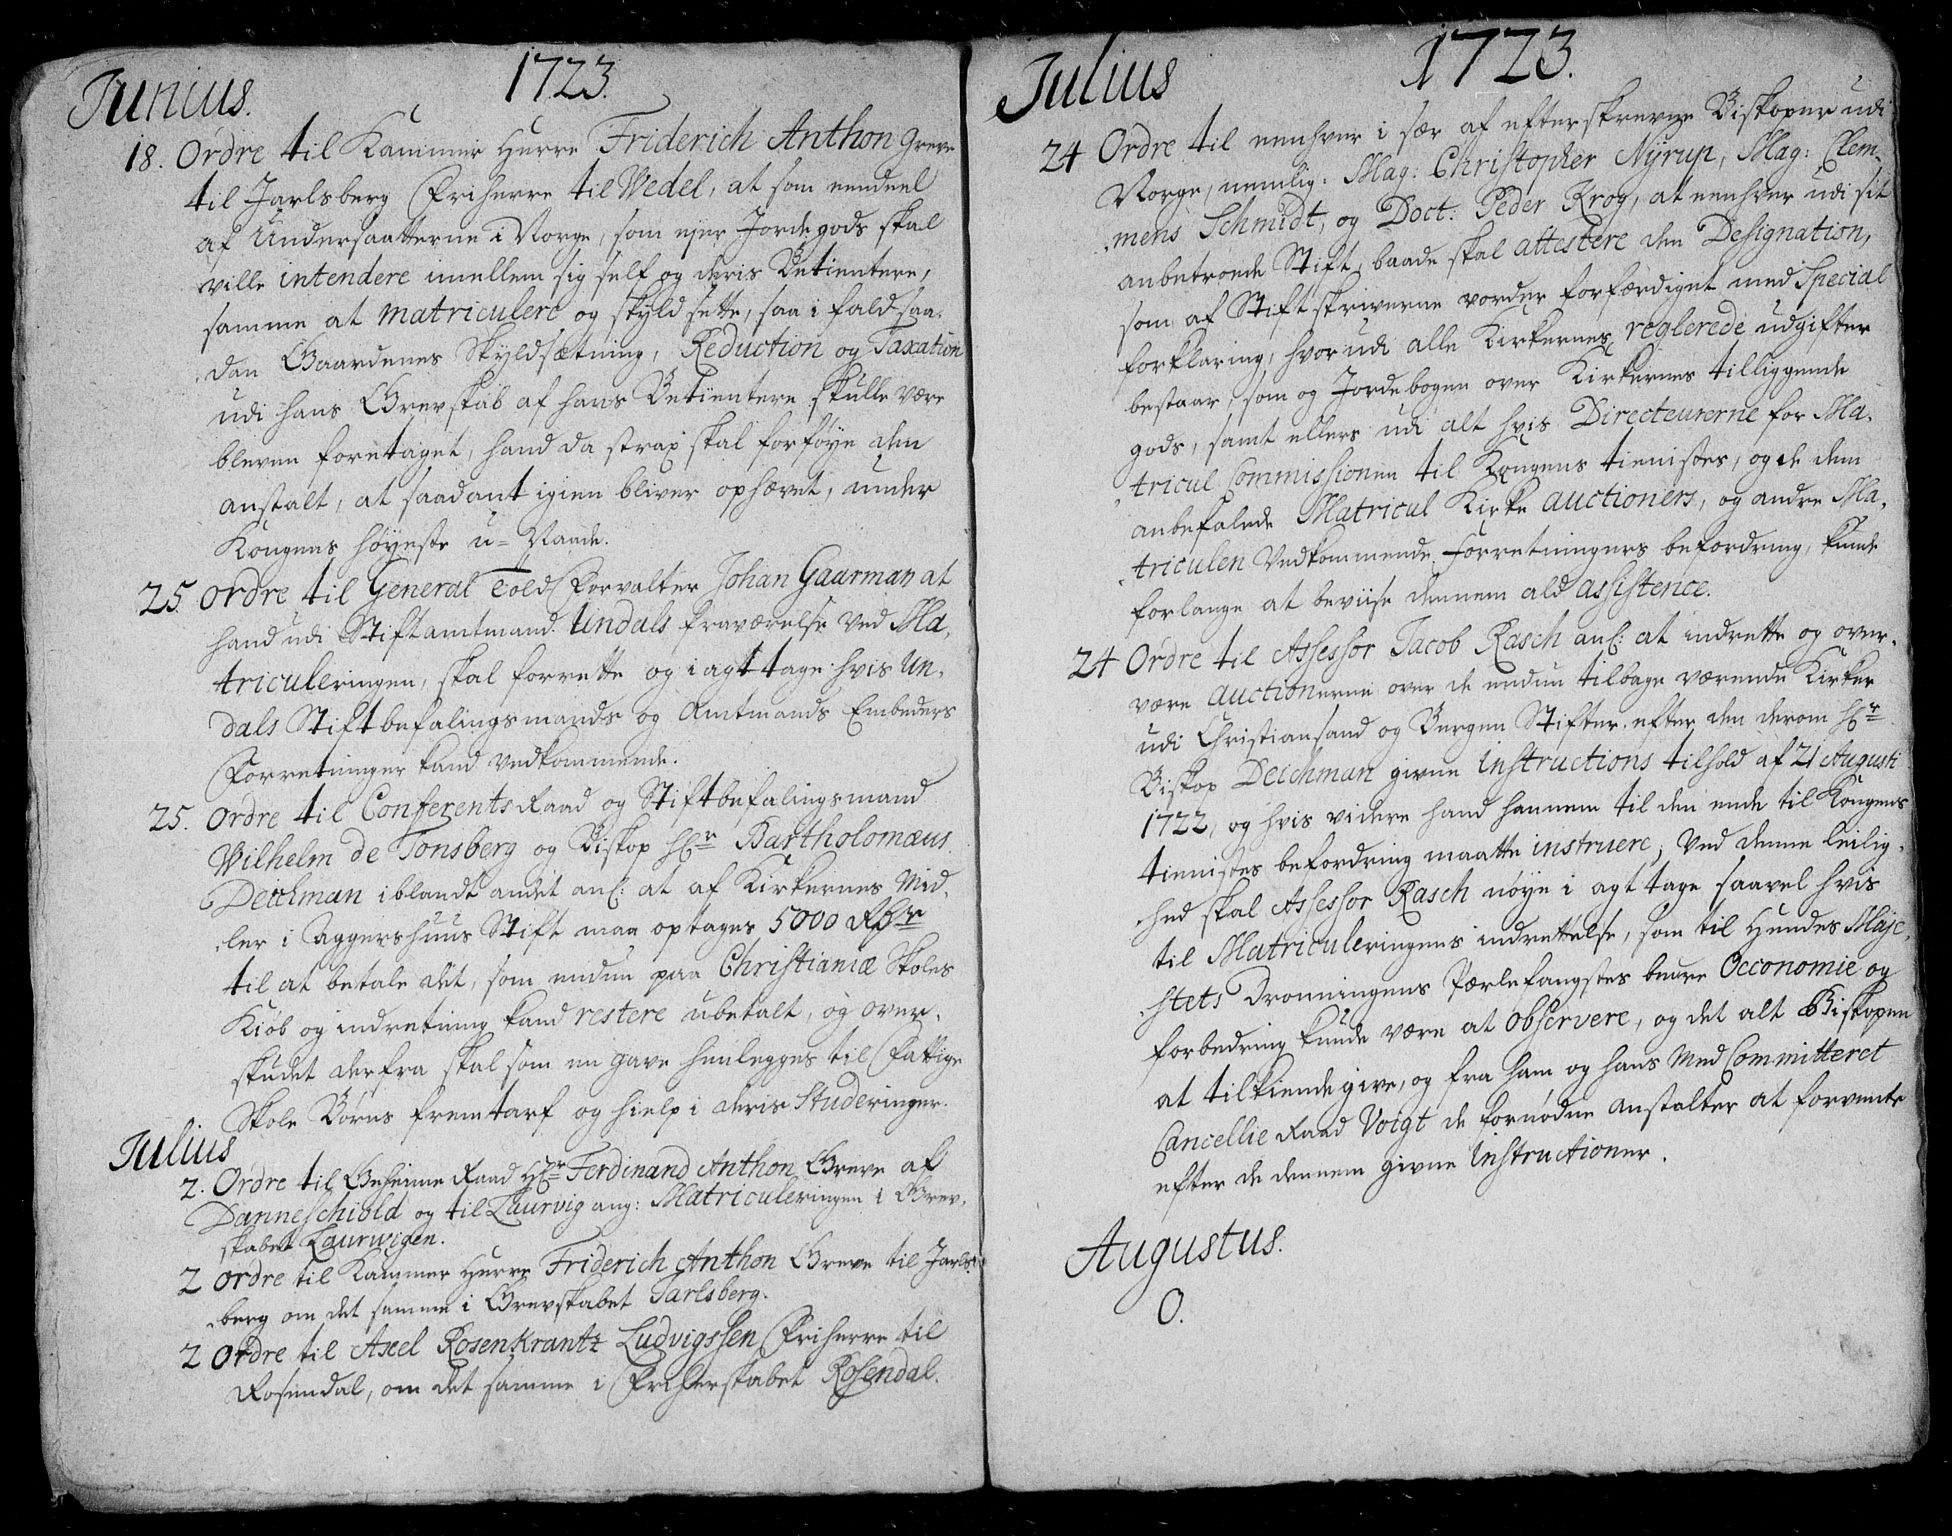 Junius. 1723.
18. Ordre til Kammer Herre Friderich Anthon Greve
til Jarlsberg Friherre til Wedel, at som eendeel
af Undersaatterne i Norge, som ejer Jordegods skal
ville intendere imellem sig self og deris Betientere,
samme at matriculere og skyldsette, saa i fald saa-
dan Gaardenes Skyldsætning, Reduction og Taxation
udi hans Grevskab af hans Betientere skulle være
bleven foretaget, hand da strax skal forføye den
anstalt, at saadant igien bliver ophævet, under
Kongens høyeste u-Naade.
25. Ordre til General Told Forvalter Johan Gaarman at
hand udi Stiftamtmand Undals fraværelse ved Ma-
triculeringen, skal forrette og i agt tage hvis Un-
dals Stiftbefalingsmands og Amtmands Embeders
Forretninger kand vedkommende.
25. Ordre til Conferents Raad og Stiftbefalingsmand
Wilhelm de Tonsberg og Biskop Hr Bartholomæus
Deichman iblandt andet anl: at af Kirkernes Mid-
ler i Aggershuus Stift maa optages 5000 Rdr
til at betale det, som endnu paa Christianiæ Skoles
Kiøb og indretning kand restere ubetalt, og over-
skudet derfra skal som en gave henlegges til Fattige
Skole Børns fremtarf og hielp i deris Studeringer.
Julius
2. Ordre til Geheime Raad Hr Ferdinand Anthon Greve af
Danneschiold og til Laurvig ang: Matriculeringen i Grev-
skabet Laurwigen.
2 Ordre til Kammer Herre Friderich Anthon Greve til Jarls-
berg om det samme i Grevskabet Jarlsberg.
2 Ordre til Axel Rosenkrantz Ludvigssen Friherre til
Rosendal, om det samme i Friherskabet Rosendal.
Julius 1723.
24 Ordre til eenhver i sær af efterskrevne Biskoper udi
Norge, nemlig: Mag: Christopher Nyrup, Mag: Clem-
mens Schmidt, og Doct: Peder Krog, at eenhver udi sit
anbetroede Stift, baade skal attestere den Designation,
som af Stiftskriverne vorder forfærdiget med Special
forklaring, hvorudi alle Kirkernes reglerede udgifter
bestaar, som og Jordebogen over Kirkernes tilliggende
gods, samt ellers udi alt hvis Directeurerne for Ma-
tricul Commissionen til Kongens tienistes, og de dem
anbefalede Matricul Kirke auctioners, og andre Ma-
triculen Vedkommende Forretningers befordring, kunde
forlange at beviise dennem ald assistence.
24 Ordre til Assessor Jacob Rasch anl: at indrette og over-
være auctionerne over de endnu tilbage værende Kirker
udi Christiansand og Bergen Stifter efter den derom Hr
Biskop Deichman givne Instructions tilhold af 21 Augusti
1722, og hvis videre hand hannem til den ende til Kongens
tienistes befordring maatte instruere, Ved denne leilig-
hed skal Assessor Rasch nøye i agt tage saavel hvis
til Matriculeringens indrettelse, som til Hendes Maje-
stets Dronningens Perlefangstes beure Oeconomie og
forbedring kunde være at observere, og det alt Biskopen
at tilkiende give, og fra ham og hans Med Committeret
Cancellie Raad Voigt de fornødne anstalter at forvente
efter de dennem givne Instructioner.
Augustus.
O.